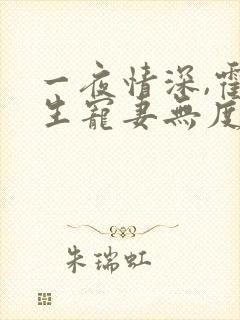 一夜情深,霍
生寵妻無度
朱瑞虹